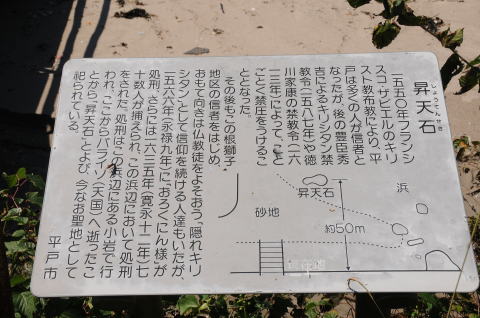 昇天石
しょうてんせき
一五五〇年フランシ
スコ・ザビエルのキリ
スト教布教により、平
戸は多くの人が信者と
なったが、後の豊臣秀
吉によるキリシタン禁
教令(一五八七年)や徳
川家康の禁教令(一六
一三年)によって、こと
ごとく禁圧をうけるこ
ととなった。
その後もこの根獅子
地区の信者をはじめ、
おもて向きは仏教徒をよそおう、隠れキリ
シタンとして信仰を続ける人達もいたが、
一五六六年(永禄九年)「おろくにん様」が
処刑、さらには一六三五年(寛永十二年)七
十数人が捕えられ、この浜辺において処刑
をされた。処刑はこの浜辺にある小岩で行
われ、ここからパライソ(天国)へ逝ったこ
とから「昇天石」とよび、今なお聖地として
祀られている。
平戸市
浜
昇天石
約50m
砂地